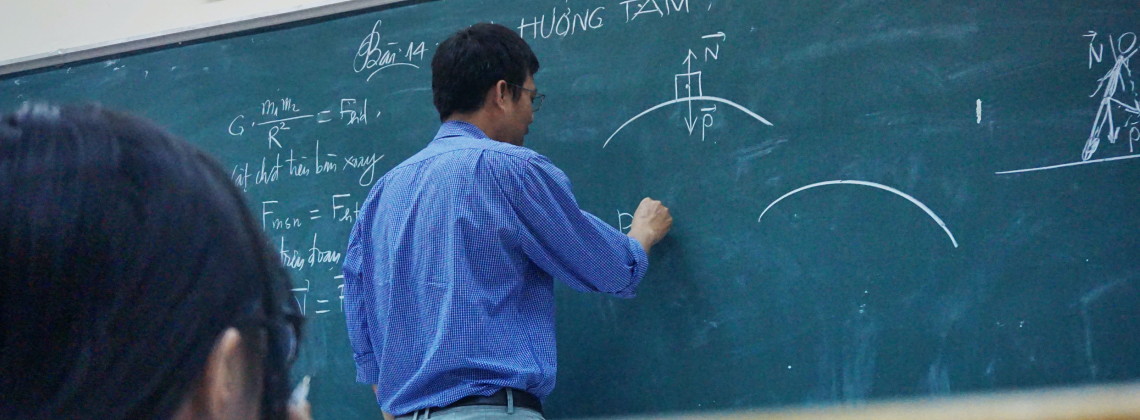 Bài 14
HƯỚNG TÂM
G. m₁m₂ / R² = Fhd.
vật chất trên bàn xoay
Fmsn = Fht
trên đoạn
N =
N
P
P
N
P